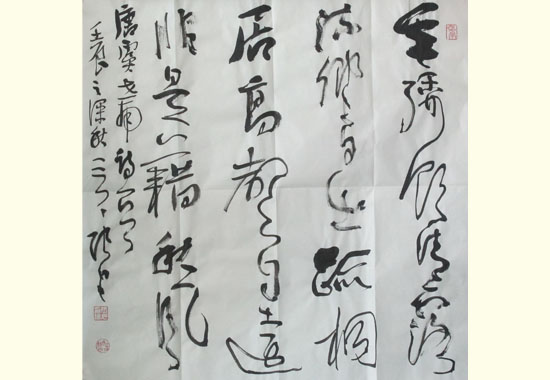 垂緌飲清露
流響出疏桐
居高聲自遠
非是藉秋風
唐虞世南詩
壬辰之深秋